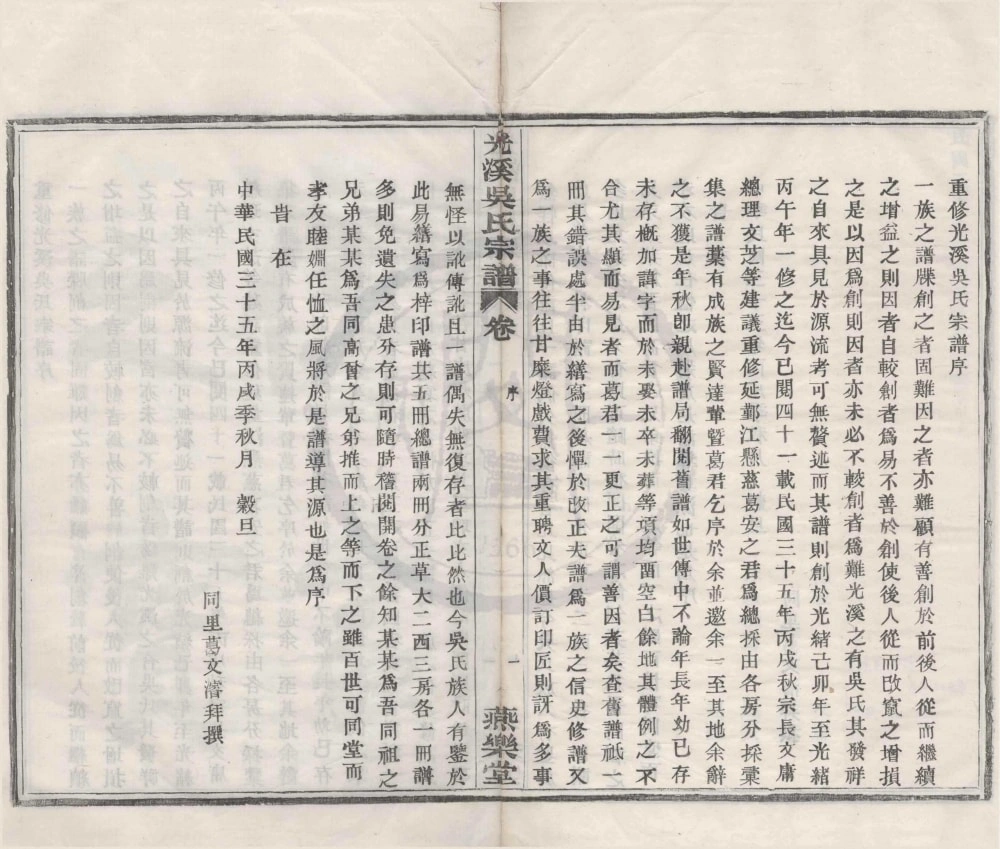 重修光溪吳氏宗譜序
一族之譜牒創之者固難因之者亦難顧有善創於前後人從而繼續
之增益之則因者自較創者爲易不善於創使後人從而改竄之增損
之是以因爲創則因者亦未必不較創者爲難光溪之有吳氏其發祥
之自來具見於源流考可無贅述而其譜則創於光緒己卯年至光緒
丙午年一修之迄今已閱四十一載民國三十五年丙戌秋宗長文庸
總理文芝等建議重修延鄞江懸慈葛安之君爲總採由各房分採彙
集之譜藁有成族之賢達輩暨葛君乞序於余並邀余一至其地余辭
之不獲是年秋卽親赴譜局翻閱舊譜如世傳中不論年長年幼已存
未存槪加諱字而於未娶未卒未葬等項均畱空白餘地其體例之不
合尤其顯而易見者而葛君一一更正之可謂善因者矣查舊譜祇一
冊其錯誤處半由於繕寫之後憚於改正夫譜爲一族之信史修譜又
爲一族之事往往甘糜燈戲費求其重聘文人價訂印匠則訝爲多事
光溪吳氏宗譜
卷
序
一
燕樂堂
無怪以訛傳訛且一譜偶失無復存者比比然也今吳氏族人有鑒於
此易繕寫爲梓印譜共五冊總譜兩冊分正草大二西三房各一冊譜
多則免遺失之患分存則可隨時稽閱開卷之餘知某某爲吾同祖之
兄弟某某爲吾同高曾之兄弟推而上之等而下之雖百世可同堂而
孝友睦婣任恤之風將於是譜導其源也是爲序
旹在
中華民國三十五年丙戌季秋月 穀旦
同里葛文濬拜撰